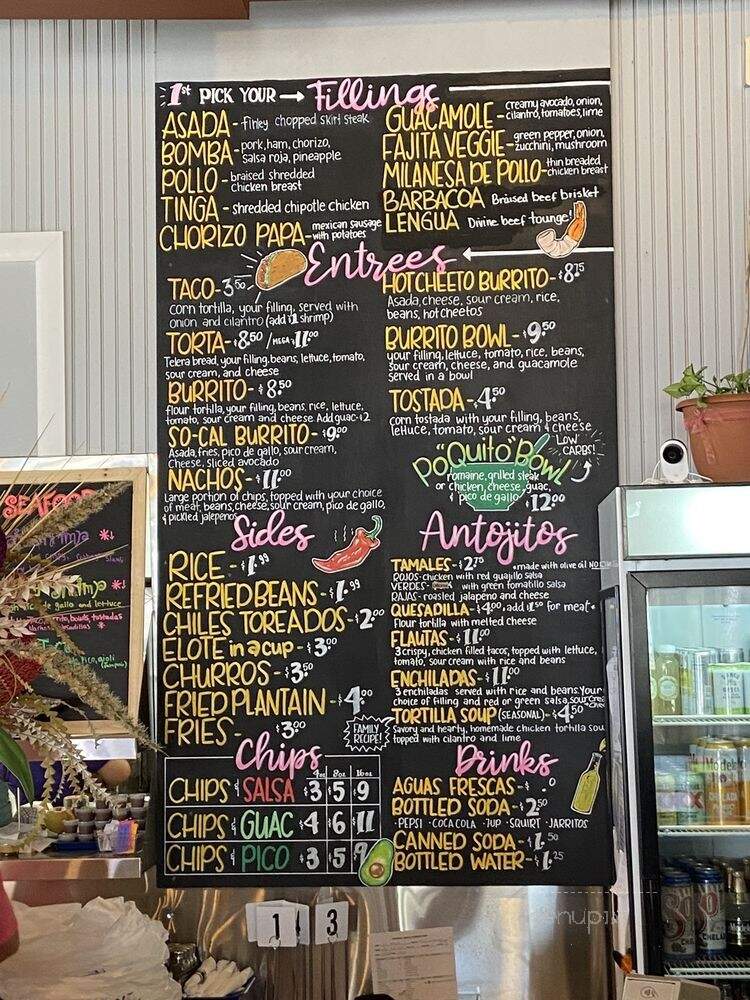 1st PICK YOUR → Fillings
ASADA - finley chopped skirt steak
BOMBA - pork, ham, chorizo,
salsa roja, pineapple
POLLO - braised shredded
chicken breast
TINGA - shredded chipotle chicken
CHORIZO PAPA - mexican sausage
with potatoes
GUACAMOLE - creamy avocado, onion,
cilantro, tomatoes, lime
FAJITA VEGGIE - green pepper, onion,
zucchini, mushroom
MILANESA DE POLLO - thin breaded
chicken breast
BARBACOA Braised beef brisket
LENGUA Divine beef tounge!
Entrees
TACO - 3.50
corn tortilla, your filling, served with
onion and cilantro (add $1 shrimp)
TORTA - $8.50 / MEGA $11.00
Telera bread, your filling, beans, lettuce, tomato,
sour cream, and cheese
BURRITO - $8.50
flour tortilla, your filling, beans, rice, lettuce,
tomato, sour cream and cheese Add guac-$2
SO-CAL BURRITO - $9.00
Asada, fries, pico de gallo, sour cream,
cheese, sliced avocado
NACHOS - $11.00
Large portion of chips, topped with your choice
of meat, beans, cheese, sour cream, pico de gallo,
& pickled jalepenos
HOT CHEETO BURRITO - $8.75
Asada, cheese, sour cream, rice,
beans, hot cheetos
BURRITO BOWL - $9.50
your filling, lettuce, tomato, rice, beans,
sour cream, cheese, and guacamole
served in a bowl
TOSTADA - $4.50
corn tostada with your filling, beans,
lettuce, tomato, sour cream & cheese
"PoQuito" Bowl
LOW
CARBS!
romaine, grilled steak
or chicken, cheese, guac,
& pico de gallo $12.00
Sides
RICE - $1.99
REFRIED BEANS - $1.99
CHILES TOREADOS - $2.00
ELOTE in a cup - $3.00
CHURROS - $3.50
FRIED PLANTAIN - $4.00
FRIES - $3.00
Antojitos
TAMALES - $2.75 *made with olive oil NO
ROJOS - chicken with red guajillo salsa
VERDES - with green tomatillo salsa
RAJAS - roasted jalapeno and cheese
QUESADILLA - $4.00, add $1.50 for meat*
Flour tortilla with melted cheese
FLAUTAS - $11.00
3 crispy, chicken filled tacos, topped with lettuce,
tomato, sour cream with rice and beans
ENCHILADAS - $11.00
3 enchiladas served with rice and beans. Your
choice of filling and red or green salsa, sour cream
TORTILLA SOUP (SEASONAL) - $4.50
Savory and hearty, homemade chicken tortilla sou
topped with cilantro and lime
FAMILY
RECIPE!
Chips
4oz 8oz 16oz
CHIPS & SALSA $3 $5 $9
CHIPS & GUAC $4 $6 $11
CHIPS & PICO $3 $5 $9
Drinks
AGUAS FRESCAS - $
BOTTLED SODA - $2.50
·PEPSI ·COCA COLA ·7UP ·SQUIRT ·JARRITOS
CANNED SODA - $1.50
BOTTLED WATER - $1.25
SEAFOOD
de gallo and lettuce
burrito, bowls, tostadas
Nachos quesadillas
pico, ajoli
Modelo
CHELADA
1 3